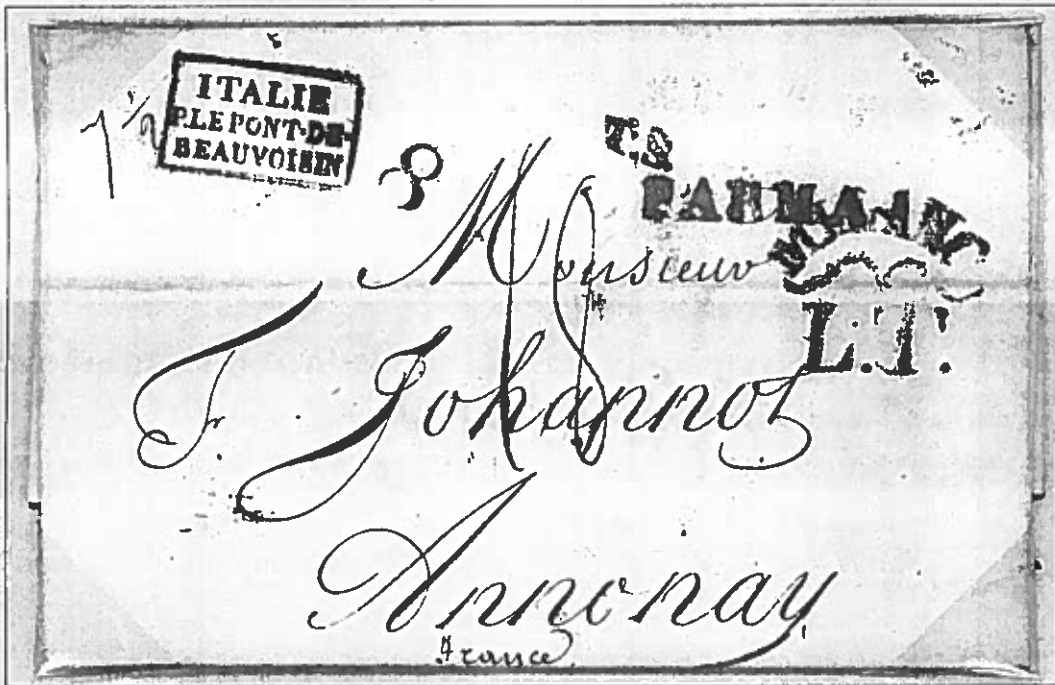 7 1/2
ITALIE
P. LE PONT-DE-
BEAUVOISIN
T.S
PARMA
L.T.
Monsieur
Fr. Johannot
Annonay
France.